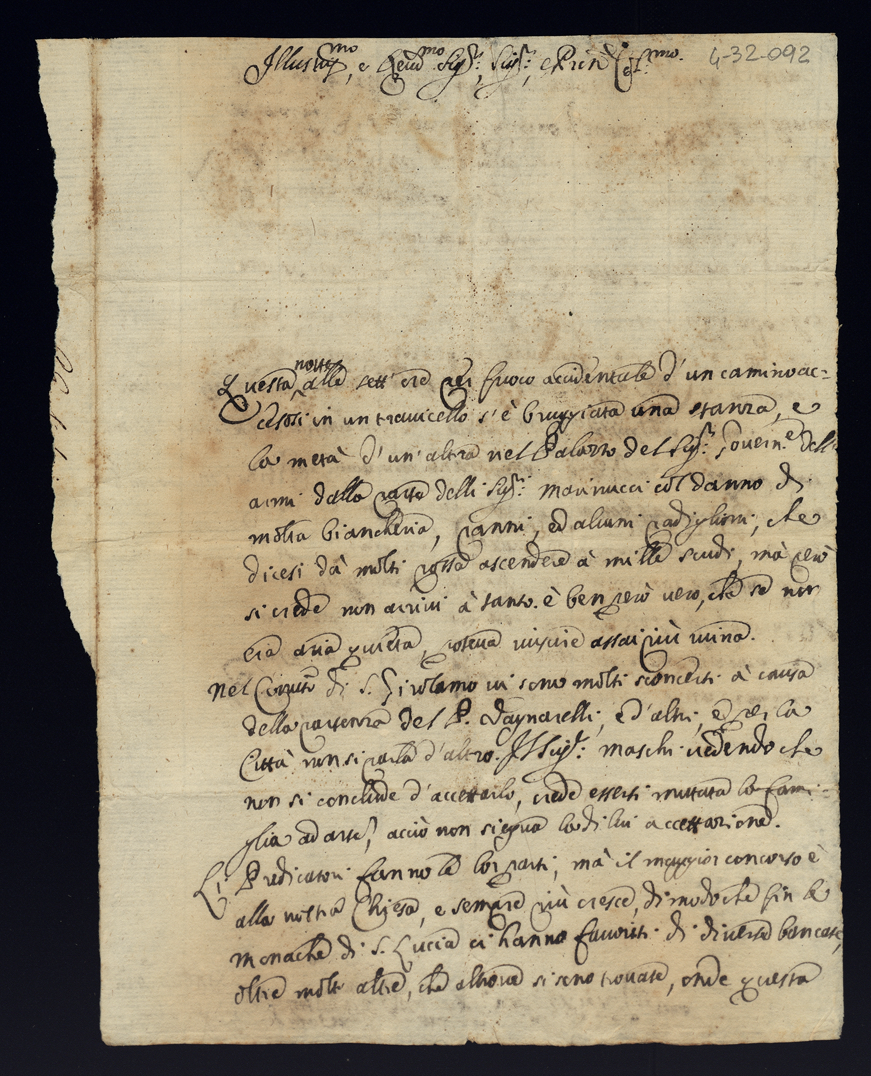 4-32-092
Illustr.mo, e Rev.mo Sig.r, Sig.r, e Pron Col.mo
Questa notte alle sett'ore per fuoco accidentale d'un camino ac=
cesosi in un travicello s'è bruggiata una stanza, e
la metà d'un'altra nel Palazzo del Sig.r Govern.e dell'
armi dalla parte delli Sig.ri Marinucci col danno di
molta biancheria, panni, ed alcuni padiglioni, che
dicesi dà molti possa ascendere à mille scudi, mà però
si crede non arrivi à tanto. è ben però vero, che se non
era aria quieta, poteva riuscire assai più ruina.
nel Convto di S. Girolamo vi sono molti sconcerti à causa
della partenza del P. Pagnarelli, e d'altri, e per la
Città non si parla d'altro. Il Sig.r Maschi vedendo che
non si conclude d'accettarlo, crede essersi mutata la fami=
glia ad arte, acciò non siegua la di lui accettazione.
Li Predicatori fanno le lor parti, mà il maggior concorso è
alla nostra Chiesa, e sempre più cresce, di modo che fin le
monache di S. Lucia ci hanno favoriti di diverse bancate,
oltre molt'altre, che altrove si sono trovate, onde questa